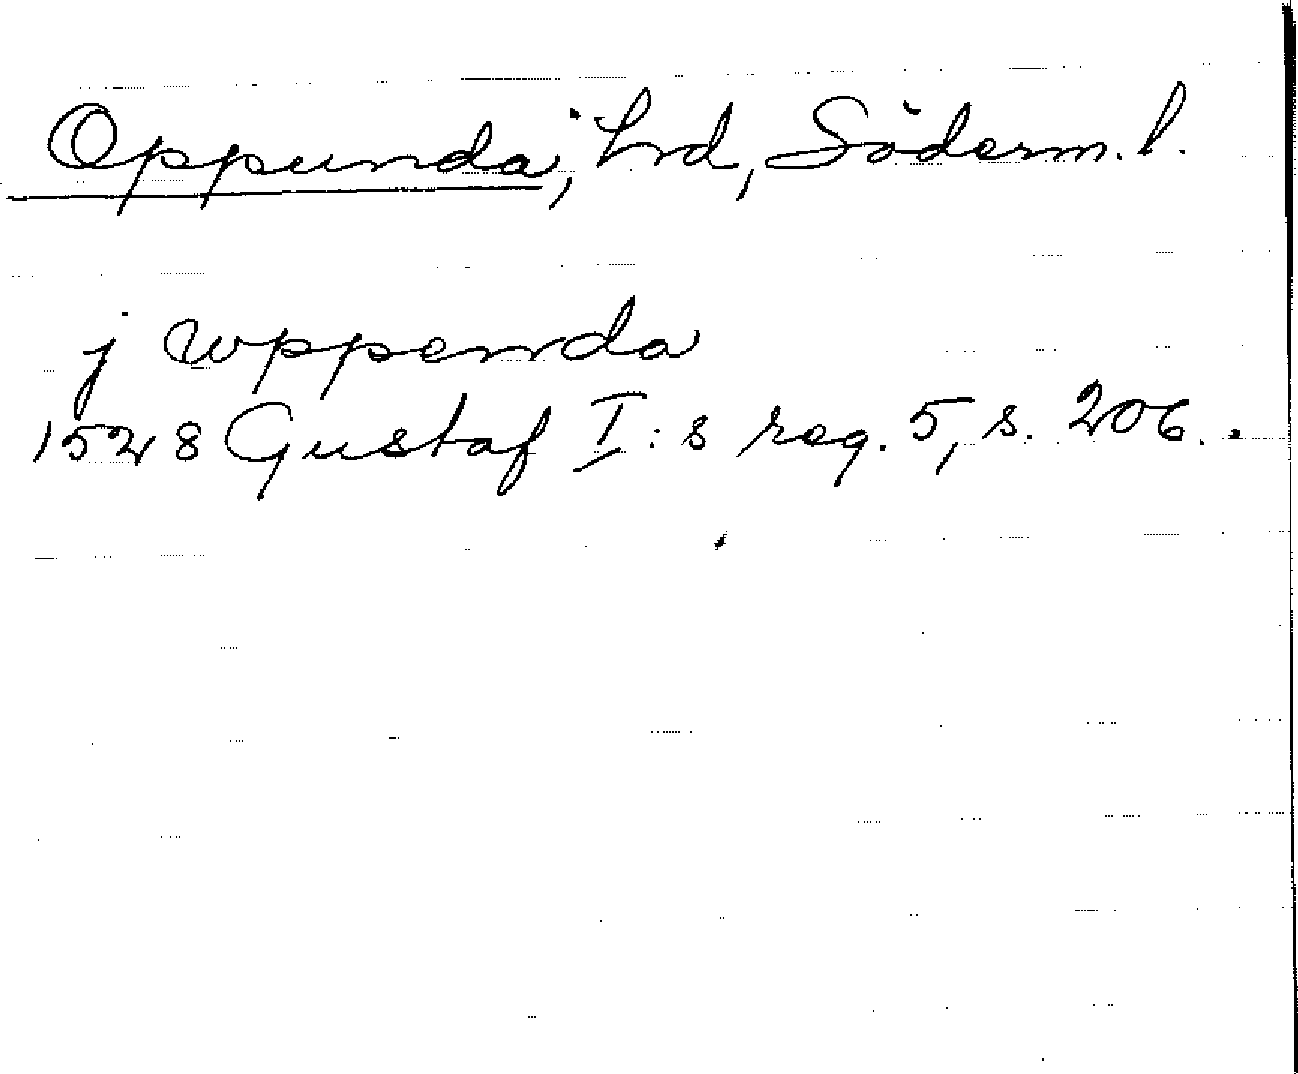 Oppunda, hrd, Söderm. l.
j wppenda
1528 Gustaf I:s reg. 5, s. 206.